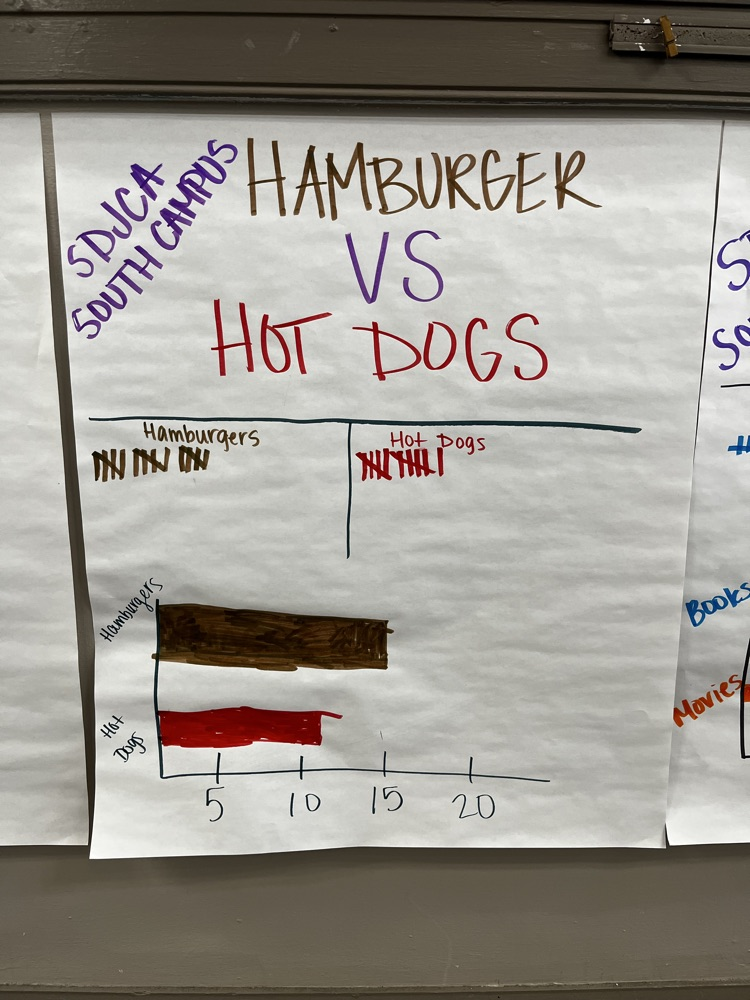 SDJCA
SOUTH CAMPUS
HAMBURGER
VS
HOT DOGS
Hamburgers
Hot Dogs
Hamburgers
Hot
Dogs
5 10 15 20
Books
Movies